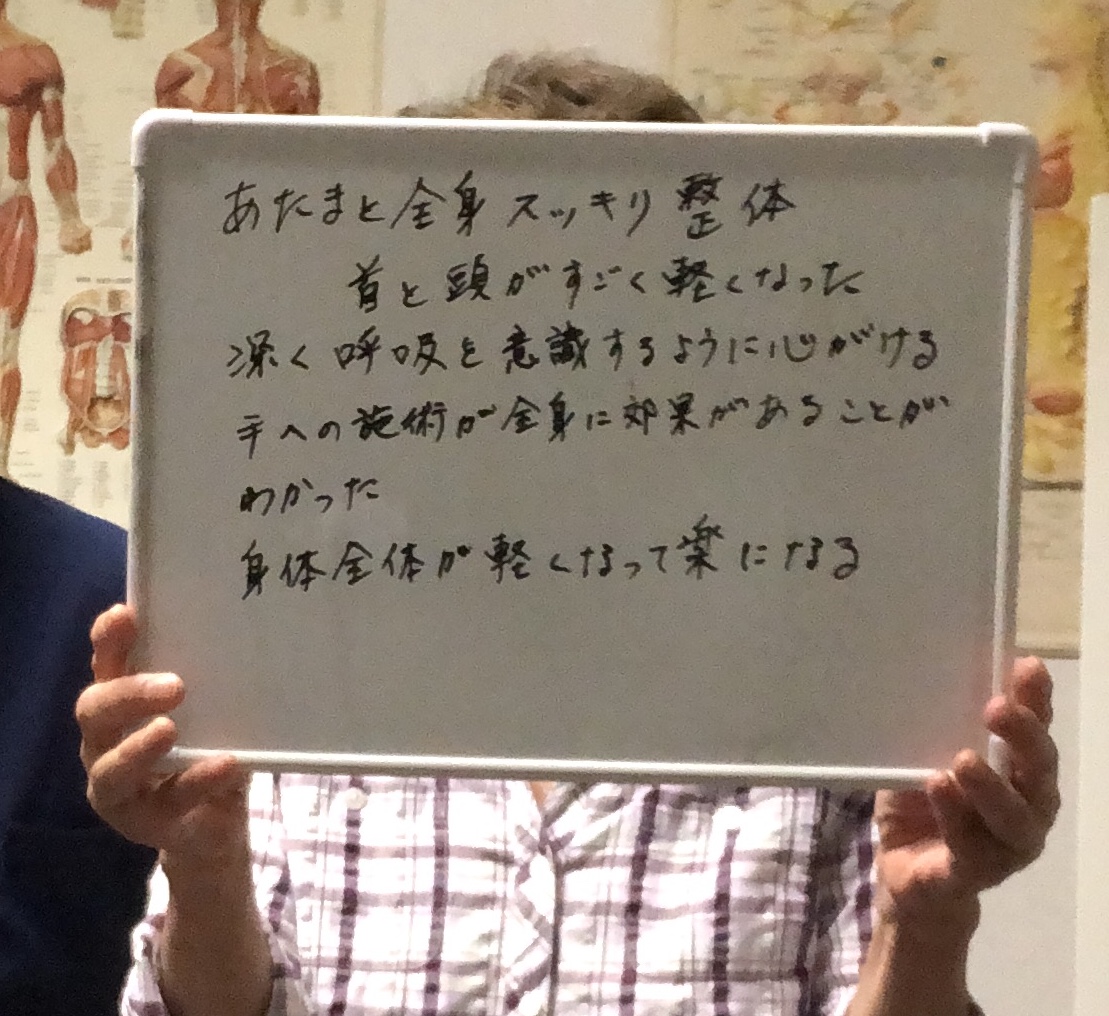 あたまと全身スッキリ整体
首と頭がすごく軽くなった
深く呼吸を意識するように心がける
手への施術が全身に効果があることが
わかった
身体全体が軽くなって楽になる